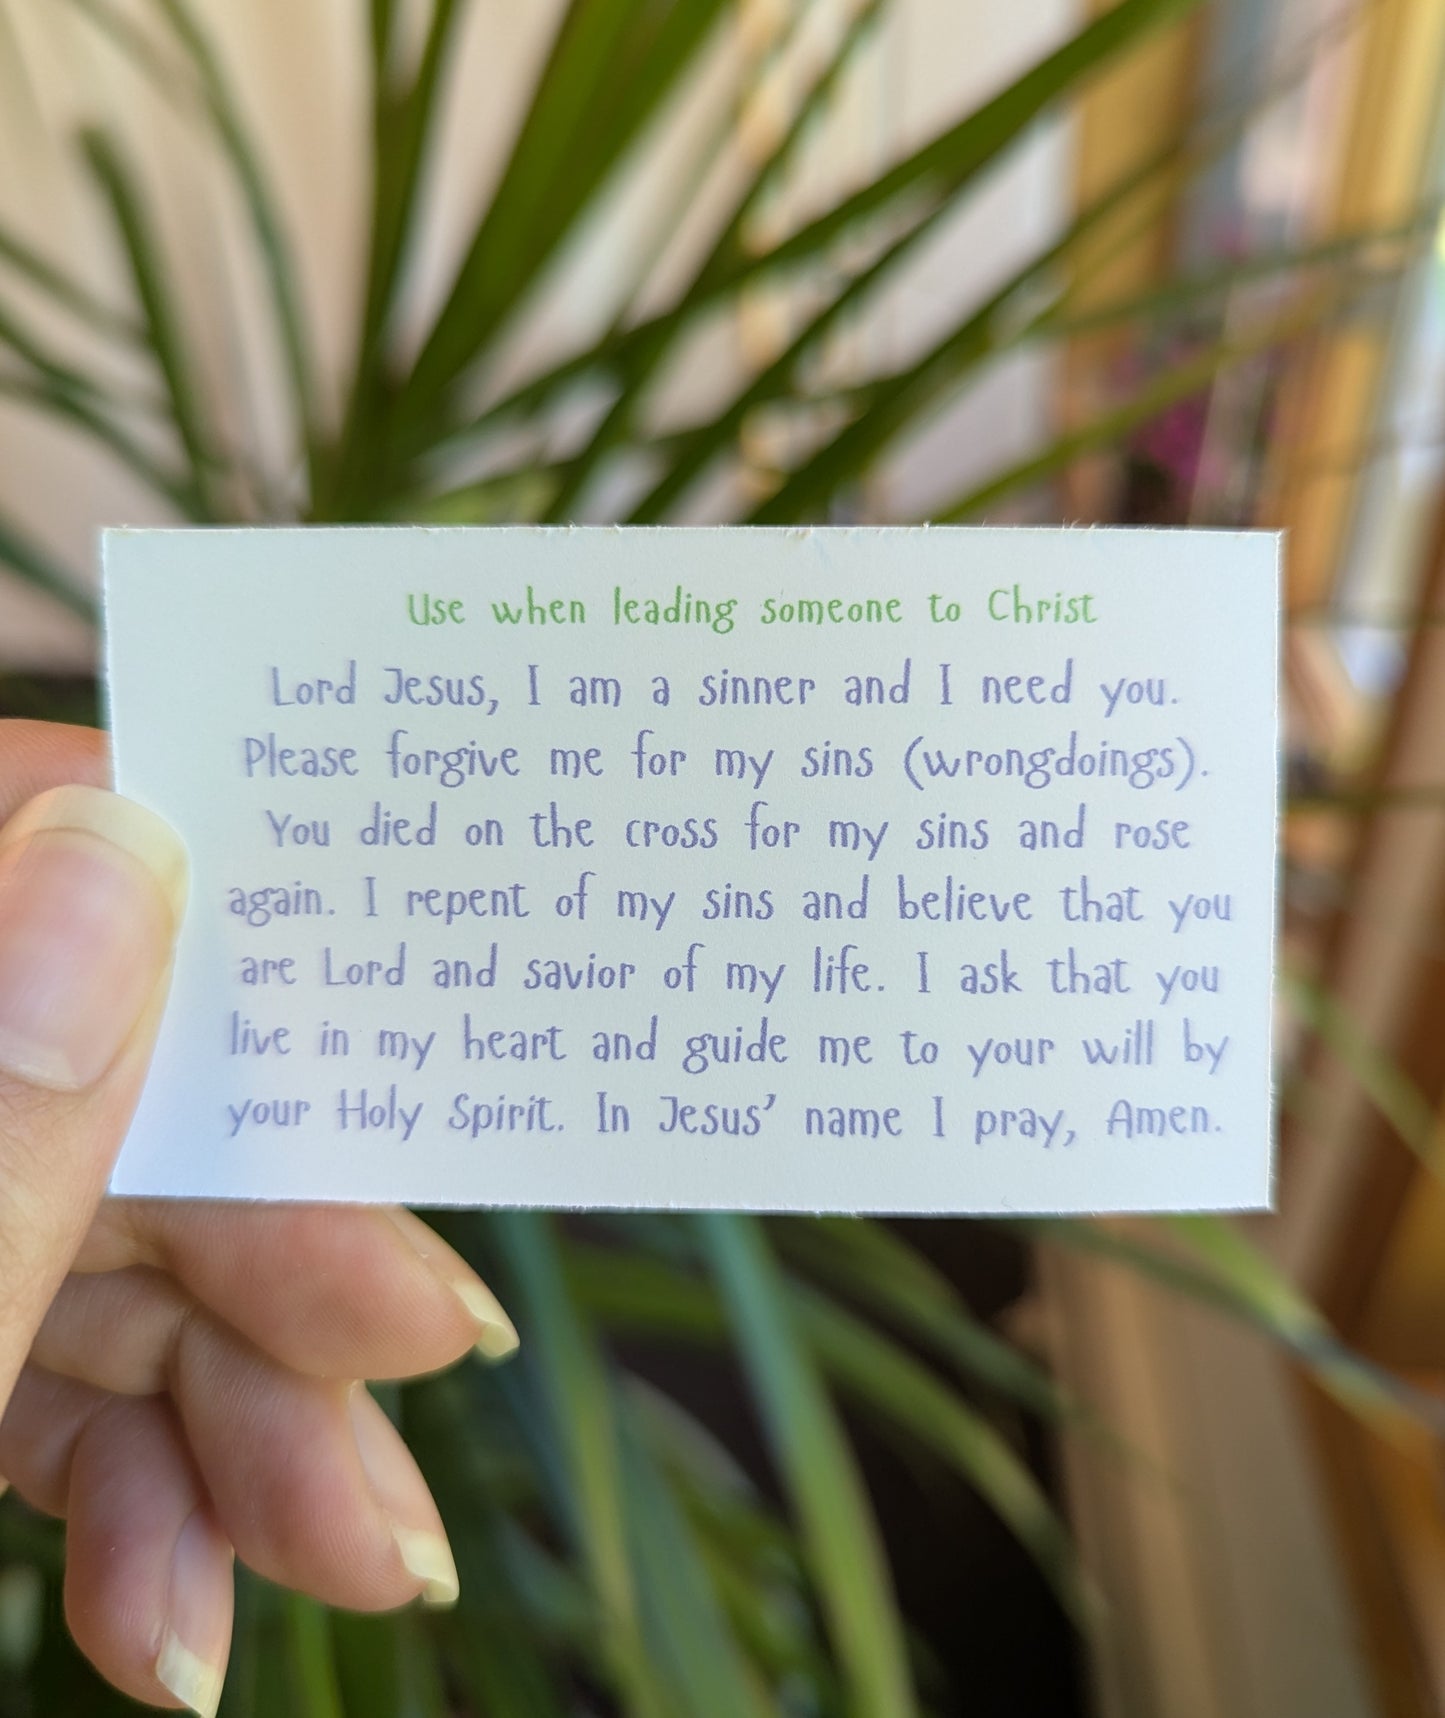 Use when leading someone to Christ
Lord Jesus, I am a sinner and I need you.
Please forgive me for my sins (wrongdoings).
You died on the cross for my sins and rose
again. I repent of my sins and believe that you
are Lord and savior of my life. I ask that you
live in my heart and guide me to your will by
your Holy Spirit. In Jesus’ name I pray, Amen.